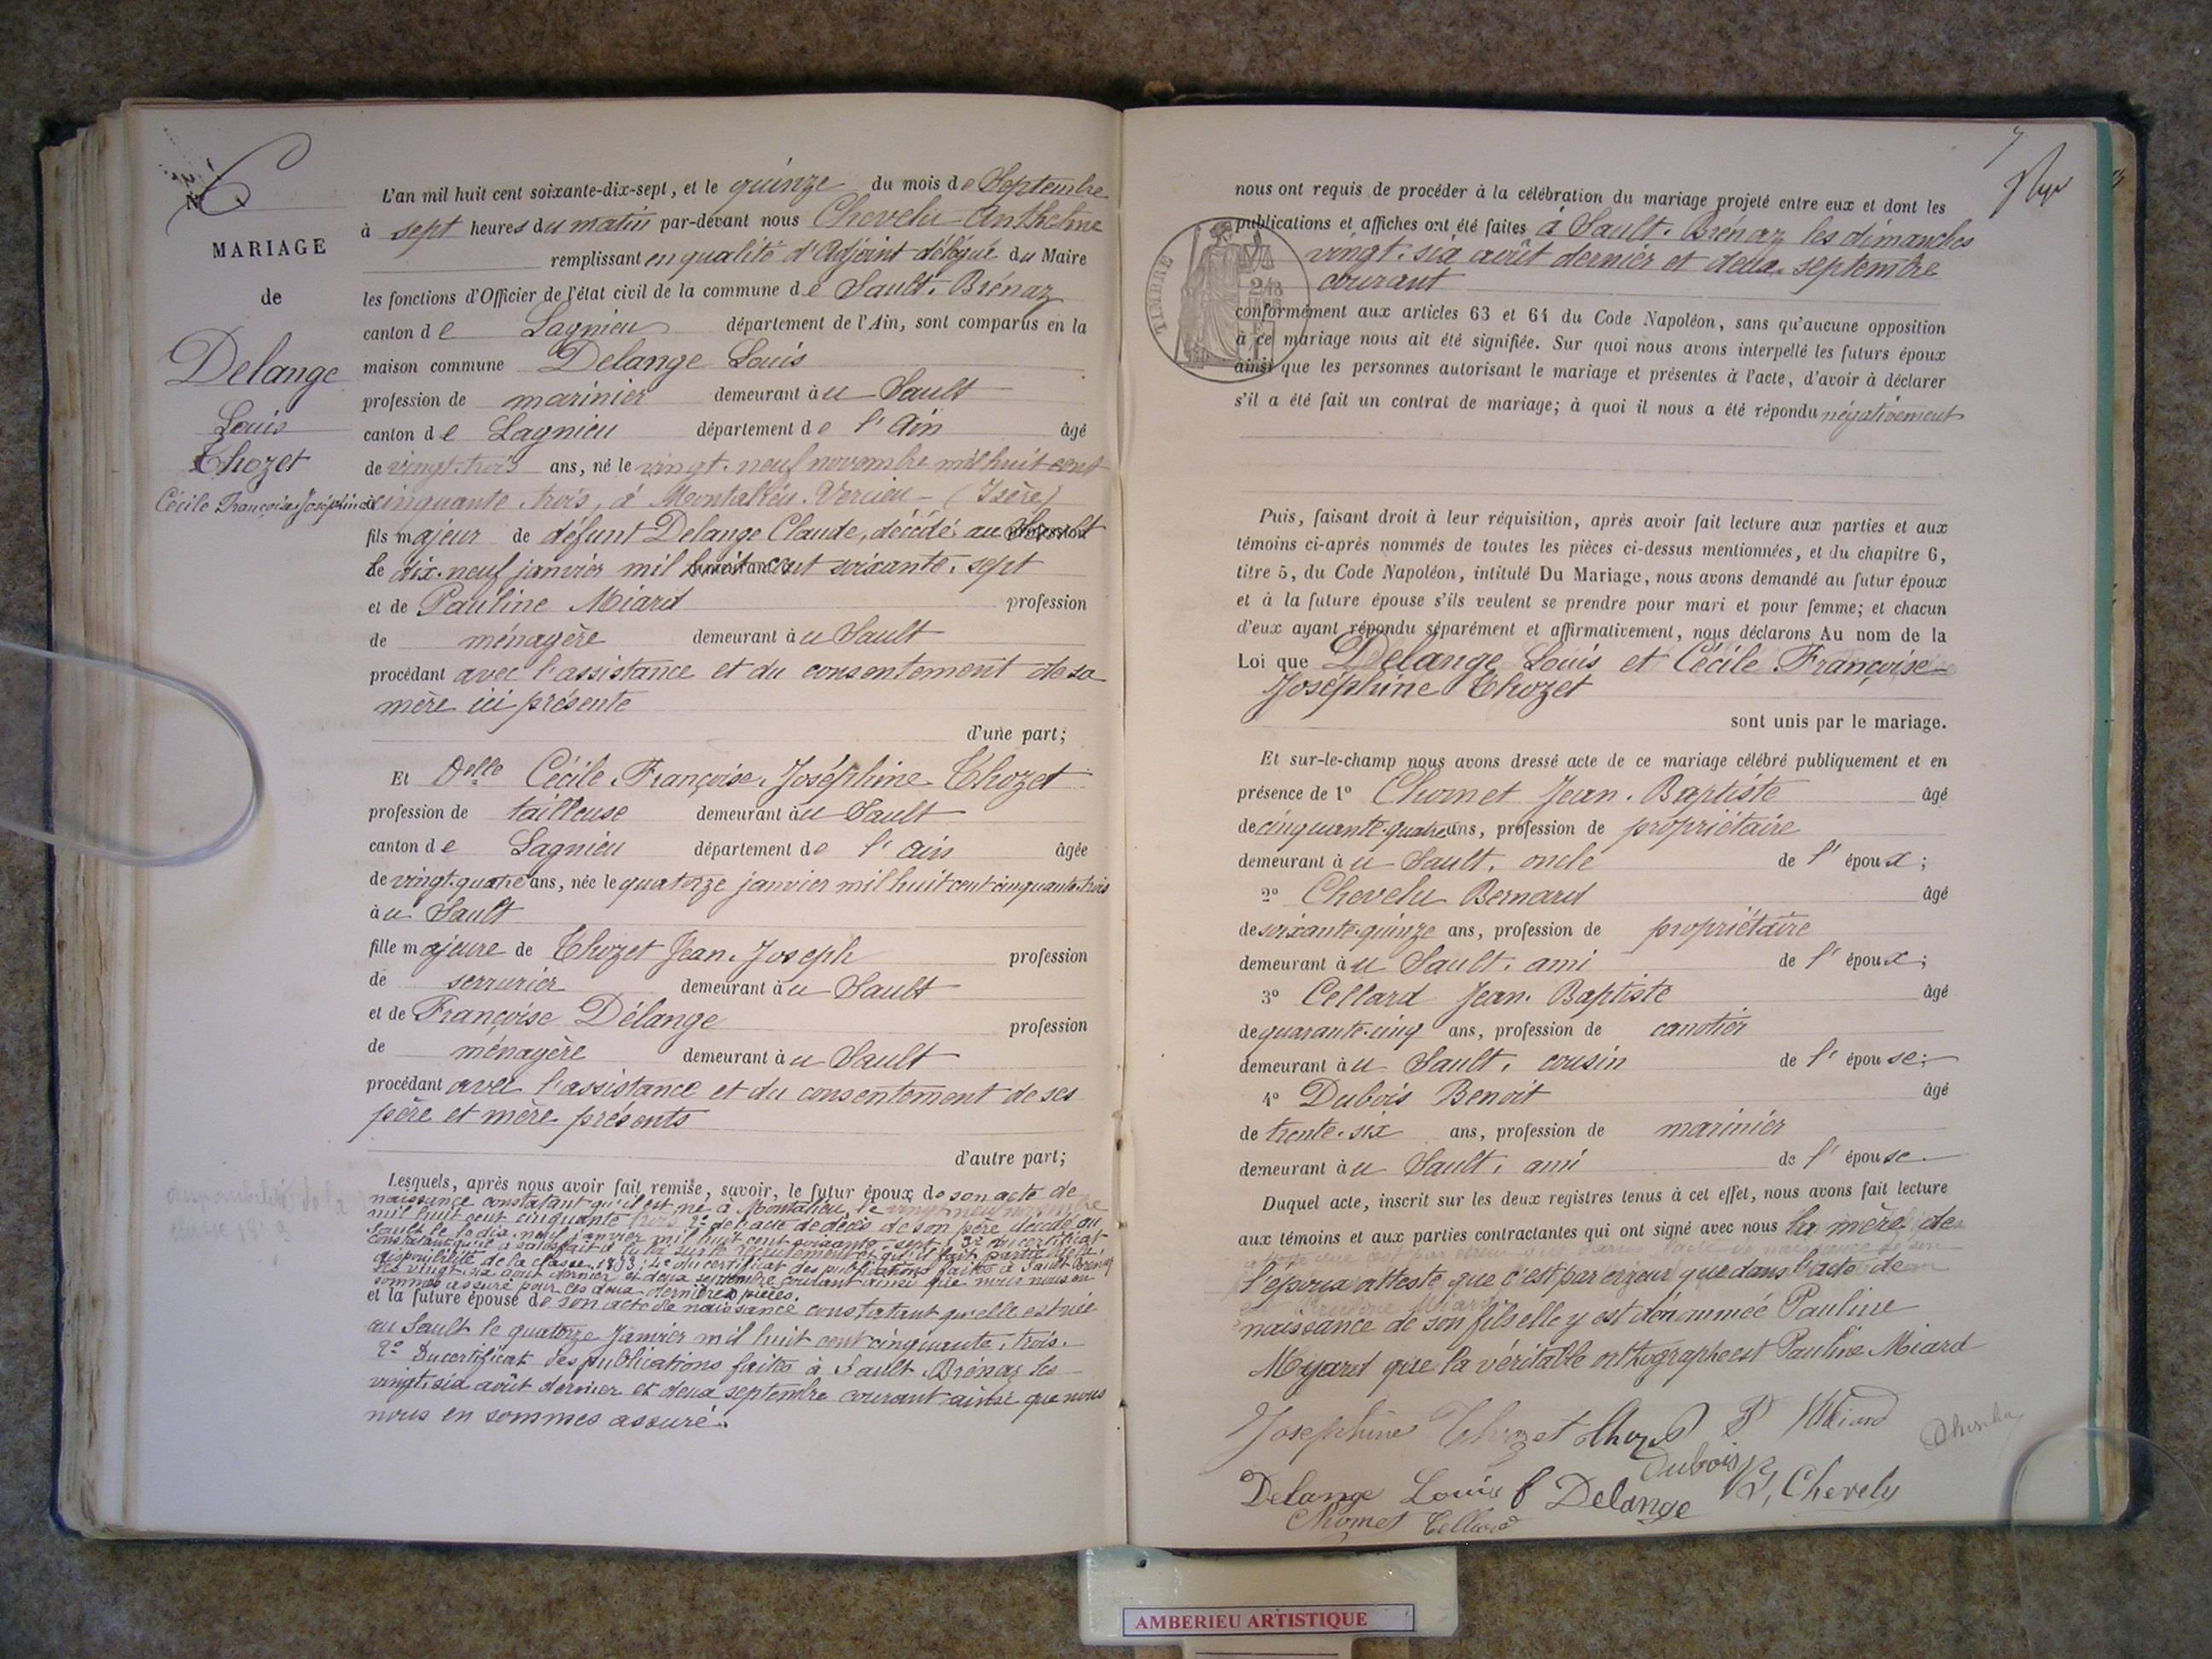 N° 6
MARIAGE
de
Delange
Louis
Thozet
Cécile Françoise Joséphine
L'an mil huit cent soixante-dix-sept, et le quinze du mois de Septembre
à sept heures du matin par-devant nous Chevelu Anthelme
remplissant en qualité d'Adjoint délégué du Maire
les fonctions d'Officier de l'état civil de la commune de Sault-Brénaz
canton de Lagnieu département de l'Ain, sont comparus en la
maison commune Delange Louis
profession de marinier demeurant à u Sault
canton de Lagnieu département de l'Ain âgé
de vingt-trois ans, né le vingt-neuf novembre mil huit cent
cinquante trois, à Montalieu-Vercieu - (Isère)
fils majeur de défunt Delange Claude, décédé au Sault
le dix-neuf janvier mil huit cent soixante-sept
et de Pauline Miard profession
de ménagère demeurant à u Sault
procédant avec l'assistance et du consentement de sa
mère ici présente
d'une part;
Et Delle Cécile Françoise Joséphine Thozet
profession de tailleuse demeurant à u Sault
canton de Lagnieu département de l'ain âgée
de vingt-quatre ans, née le quatorze janvier mil huit cent cinquante-trois
à u Sault
fille majeure de Thozet Jean-Joseph profession
de serrurier demeurant à u Sault
et de Françoise Délange profession
de ménagère demeurant à u Sault
procédant avec l'assistance et du consentement de ses
père et mère présents
d'autre part;
Lesquels, après nous avoir fait remise, savoir, le futur époux de son acte de
naissance constatant qu'il est né à Montalieu, le vingt neuf novembre
mil huit cent cinquante trois 2° de l'acte de décès de son père décédé au
Sault le dix-neuf janvier mil huit cent soixante-sept, 3° du certificat
constatant qu'il a satisfait à la loi sur le recrutement et qu'il fait partie de la
disponibilité de la classe 1873; 4° du certificat des publications faites à Sault-Brénaz
les vingt-six août dernier et deux septembre courant ainsi que nous nous en
sommes assuré pour ces deux dernières pièces.
et la future épouse de son acte de naissance constatant qu'elle est née
au Sault le quatorze Janvier mil huit cent cinquante-trois.
2° Du certificat des publications faites à Sault-Brénaz les
vingt-six août dernier et deux septembre courant ainsi que nous
nous en sommes assuré.
7
nous ont requis de procéder à la célébration du mariage projeté entre eux et dont les
publications et affiches ont été faites à Sault-Brénaz les dimanches
vingt-six août dernier et deux septembre
courant
TIMBRE
conformément aux articles 63 et 64 du Code Napoléon, sans qu'aucune opposition
à ce mariage nous ait été signifiée. Sur quoi nous avons interpellé les futurs époux
ainsi que les personnes autorisant le mariage et présentes à l'acte, d'avoir à déclarer
s'il a été fait un contrat de mariage; à quoi il nous a été répondu négativement
Puis, faisant droit à leur réquisition, après avoir fait lecture aux parties et aux
témoins ci-après nommés de toutes les pièces ci-dessus mentionnées, et du chapitre 6,
titre 5, du Code Napoléon, intitulé Du Mariage, nous avons demandé au futur époux
et à la future épouse s'ils veulent se prendre pour mari et pour femme; et chacun
d'eux ayant répondu séparément et affirmativement, nous déclarons Au nom de la
Loi que Delange Louis et Cécile Françoise
Joséphine Thozet
sont unis par le mariage.
Et sur-le-champ nous avons dressé acte de ce mariage célébré publiquement et en
présence de 1° Chomet Jean-Baptiste âgé
de cinquante-quatre ans, profession de propriétaire
demeurant à u Sault, oncle de l'époux;
2° Chevelu Bernard âgé
de soixante-quinze ans, profession de propriétaire
demeurant à u Sault, ami de l'époux;
3° Cellard Jean-Baptiste âgé
de quarante-cinq ans, profession de canotier
demeurant à u Sault, cousin de l'épouse;
4° Dubois Benoit âgé
de trente-six ans, profession de marinier
demeurant à u Sault, ami de l'épouse
Duquel acte, inscrit sur les deux registres tenus à cet effet, nous avons fait lecture
aux témoins et aux parties contractantes qui ont signé avec nous la mère de
l'époux atteste que c'est par erreur que dans l'acte de
naissance de son fils elle y est dénommée Pauline
Myard que la véritable orthographe est Pauline Miard
Joséphine Thozet Thozet P Miard
Dubois
Delange Louis f Delange Chevelu
Chomet Cellard
AMBERIEU ARTISTIQUE